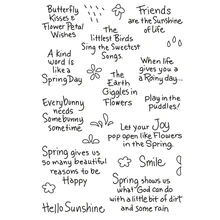 Butterfly
Kisses &
Flower Petal
Wishes
Friends
are the Sunshine
of life
The
littlest Birds
Sing the Sweetest
Songs.
A kind
word is
like a
Spring Day
When life
gives you a
Rainy day...
play in the
puddles!
The
Earth
Giggles in
Flowers
Every Bunny
needs
Some bunny
sometime.
Let your Joy
pop open like Flowers
in the Spring.
Spring gives us
so many beautiful
reasons to be
Happy
Smile
Spring shows us
what God can do
with a little bit of dirt
and some rain
Hello Sunshine